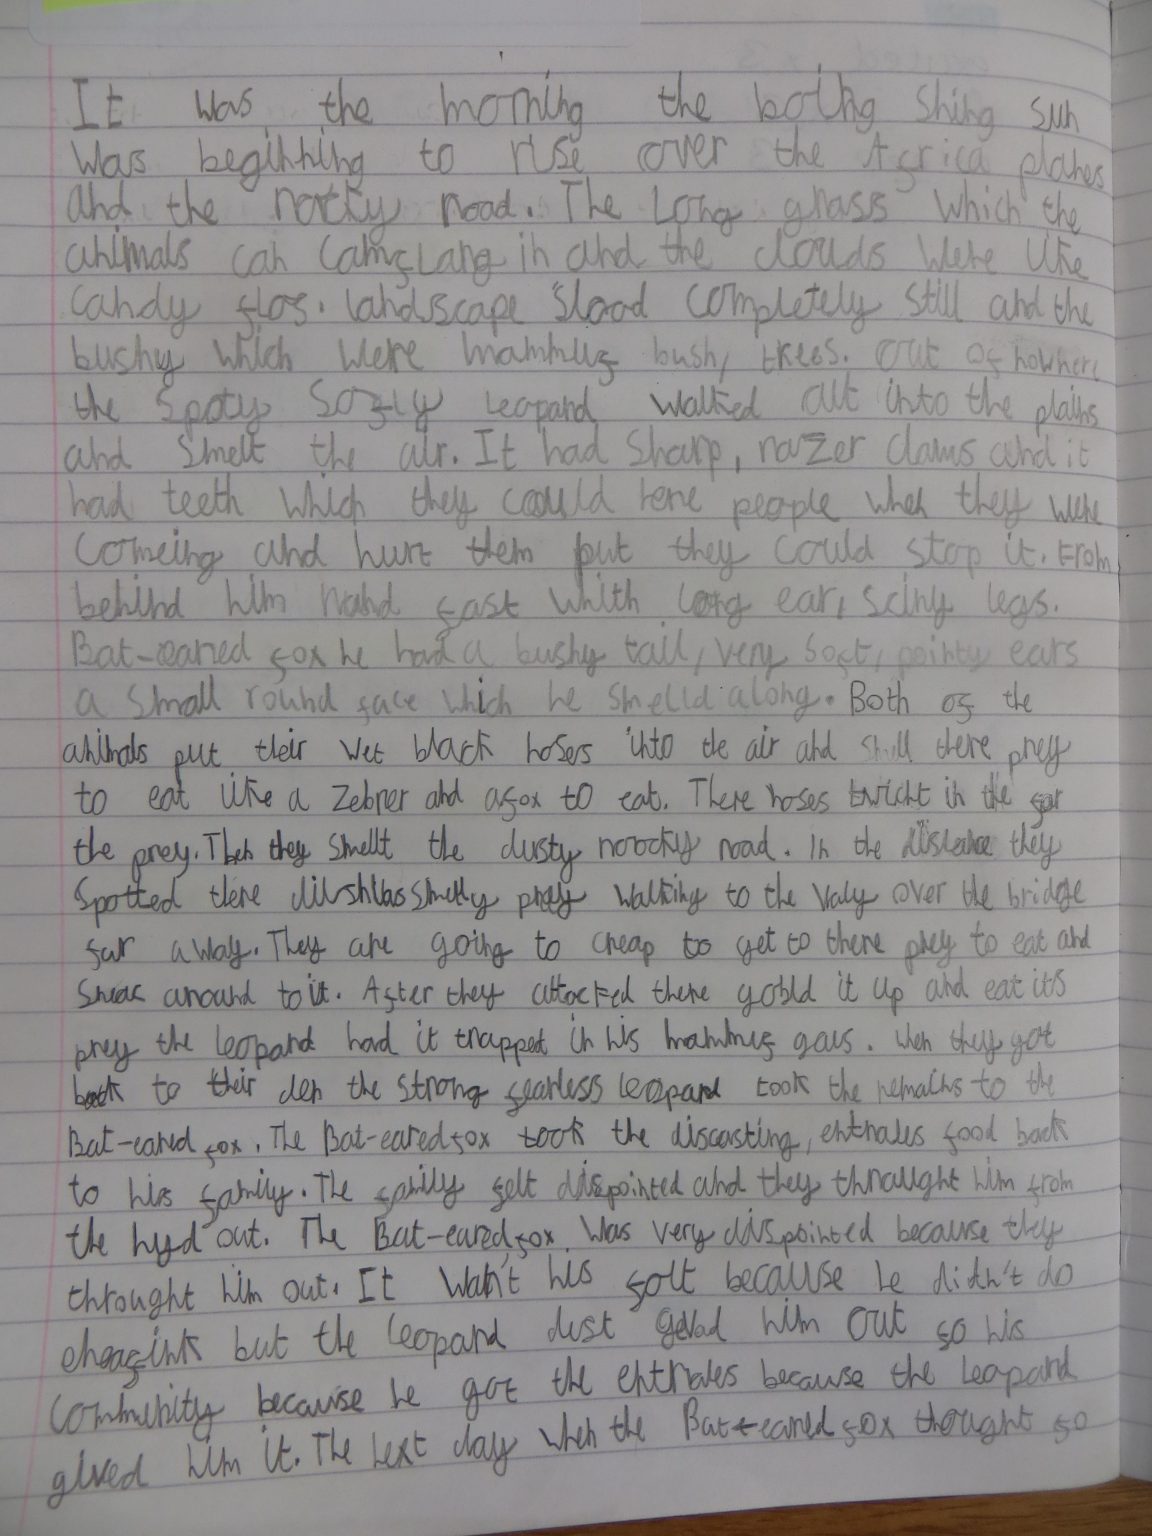 It was the morning the boing shing sun
was beginning to rise over the Africa planes
and the rocky road. The Long grass which the
animals can camflang in and the clouds were like
candy flos. landscape stood completely still and the
bushy which were bush, trees. Out of nowhere
the spoty leopard walked out into the plains
and smelt the air. It had sharp, razer claws and it
had teeth which they could people when they were
comeing and hurt them but they could stop it. From
behind him rand fast whith long ear, sciny legs.
Bat-eared fox he had a bushy tail, very soft, pointy ears
a small round face which he smelld along. Both of the
animals put their wet black noses into the air and smll there prey
to eat like a zebrer and a fox to eat. There noses twicht in the far
the prey. Then they smellt the dusty roocky road. In the distance they
spotted there smelly prey walking to the valy over the bridge
far away. They are going to creap to get to there prey to eat and
sneac around to it. After they attacked there gobld it up and eat its
prey the leopard had it trapped in his gaws. when they got
back to their den the strong fearless leopard took the remains to the
Bat-eared fox. The Bat-eared fox took the discasting, entrales food back
to his family. The family felt dispointed and they throught him from
the hyd out. The Bat-eared fox was very dispointed because they
throught him out. It wan't his folt because he didn't do
but the leopard dust him out fo his
community because he got the entrales because the leopard
gived him it. The next day when the Bat-eared fox thought fo